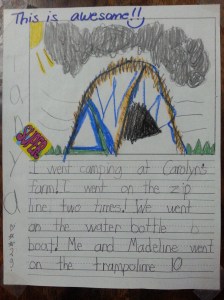 This is awesome!!
SUPER
I went camping at Carolyn's
farm! I went on the zip
line two times! We went
on the water bottle
boat! Me and Madeline went
on the trampoline 10